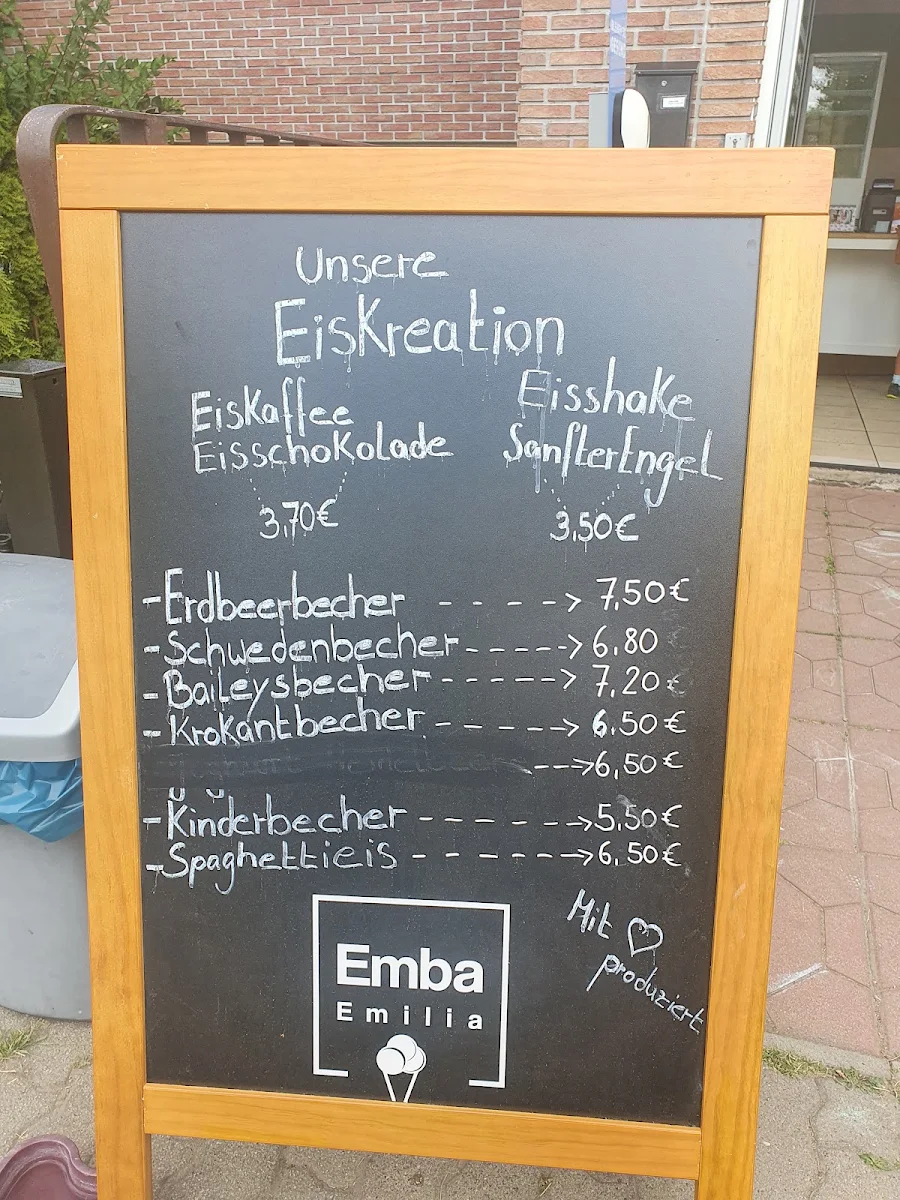 Unsere
EisKreation
EisKaffee
EisschoKolade
3,70€
EisshaKe
SanfterEngel
3,50€
-Erdbeerbecher - - - --> 7,50€
-Schwedenbecher -----> 6,80
-Baileysbecher -----> 7,20€
-KroKantbecher - - - --> 6,50€
--->6,50€
-Kinderbecher - - - - - -->5,50€
-Spaghettieis - - - - - -->6,50€
Mit ♡
produziert
Emba
Emilia